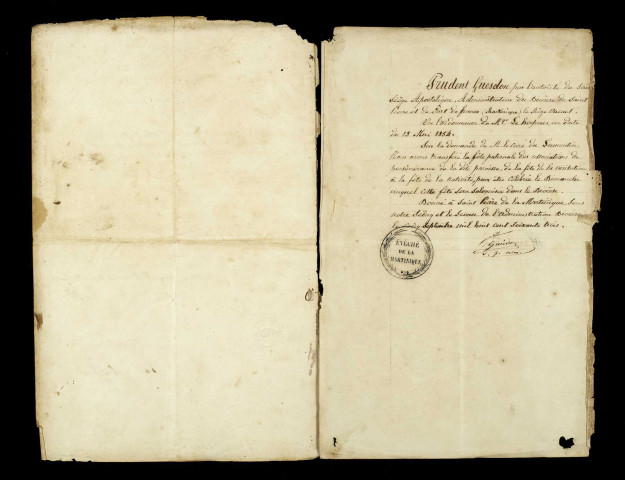 Prudent Guesdon par l'autorité du Saint
Siège Apostolique, Administrateur du Diocèse de Saint
Pierre et de Fort de france, (Martinique) le Siège Vacant.
Vu l'ordonnance de Mr. Le herpeur, en date
du 13 Mai 1854.
Sur la demande de M. le curé du
Nous avons transféré la fête patronale des associations de
persévérance de la dite paroisse, de la fête de la visitation
à la fête de la nativité, pour être célébrée le Dimanche
auquel cette fête sera Solennisée dans le Diocèse.
Donné à Saint Pierre de la Martinique, Sous
notre Seing et le Sceau de l'administration
septembre mil huit cent soixante trois.
Guesdon
ÉVÊCHÉ
DE LA
MARTINIQUE